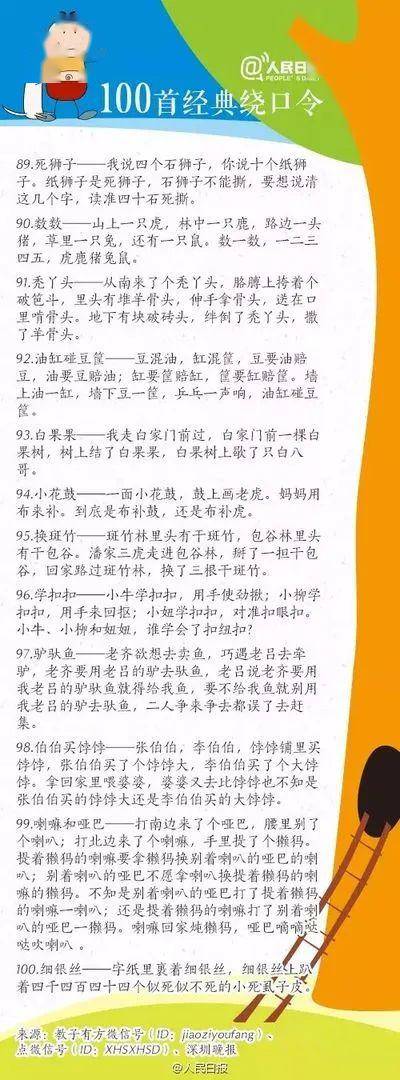 @人民日
PEOPLE'S D
100首经典绕口令
89.死狮子——我说四个石狮子，你说十个纸狮
子。纸狮子是死狮子，石狮子不能撕，要想说清
这几个字，读准四十石死撕。
90.数数——山上一只虎，林中一只鹿，路边一头
猪，草里一只兔，还有一只鼠。数一数，一二三
四五，虎鹿猪兔鼠。
91.秃丫头——从南来了个秃丫头，胳膊上挎着个
破笆斗，里头有堆羊骨头，伸手拿骨头，送在口
里啃骨头。地下有块破砖头，绊倒了秃丫头，撒
了羊骨头。
92.油缸碰豆筐——豆混油，缸混筐，豆要油赔
豆，油要豆赔油；缸要筐赔缸，筐要缸赔筐。墙
上油一缸，墙下豆一筐，乒乓一声响，油缸碰豆
筐。
93.白果果——我走白家门前过，白家门前一棵白
果树，树上结了白果果，白果树上歇了只白八
哥。
94.小花鼓——一面小花鼓，鼓上画老虎。妈妈用
布来补。到底是布补鼓，还是布补虎。
95.换斑竹——斑竹林里头有干斑竹，包谷林里头
有干包谷。潘家三虎走进包谷林，掰了一担干包
谷，回家路过斑竹林，换了三根干斑竹。
96.学扣扣——小牛学扣扣，用手使劲揿；小柳学
扣扣，用手来回抠；小妞学扣扣，对准扣眼扣。
小牛、小柳和妞妞，谁学会了扣纽扣？
97.驴驮鱼——老齐欲想去卖鱼，巧遇老吕去牵
驴，老齐要用老吕的驴去驮鱼，老吕说老齐要用
我老吕的驴驮鱼就得给我鱼，要不给我鱼就别用
我老吕的驴去驮鱼，二人争来争去都误了去赶
集。
98.伯伯买饽饽——张伯伯，李伯伯，饽饽铺里买
饽饽，张伯伯买了个饽饽大，李伯伯买了个大饽
饽。拿回家里喂婆婆，婆婆又去比饽饽也不知是
张伯伯买的饽饽大还是李伯伯买的大饽饽。
99.喇嘛和哑巴——打南边来了个哑巴，腰里别了
个喇叭；打北边来了个喇嘛，手里提了个獭犸。
提着獭犸的喇嘛要拿獭犸换别着喇叭的哑巴的喇
叭；别着喇叭的哑巴不愿拿喇叭换提着獭犸的喇
嘛的獭犸。不知是别着喇叭的哑巴打了提着獭犸
的喇嘛一喇叭；还是提着獭犸的喇嘛打了别着喇
叭的哑巴一獭犸。喇嘛回家炖獭犸，哑巴嘀嘀哒
哒吹喇叭。
100.细银丝——字纸里裹着细银丝，细银丝上趴
着四千四百四十四个似死似不死的小死虱子皮。
来源：教子有方微信号（ID：jiaoziyoufang）、
点微信号（ID：XHSXHSD）、深圳晚报
@人民日报